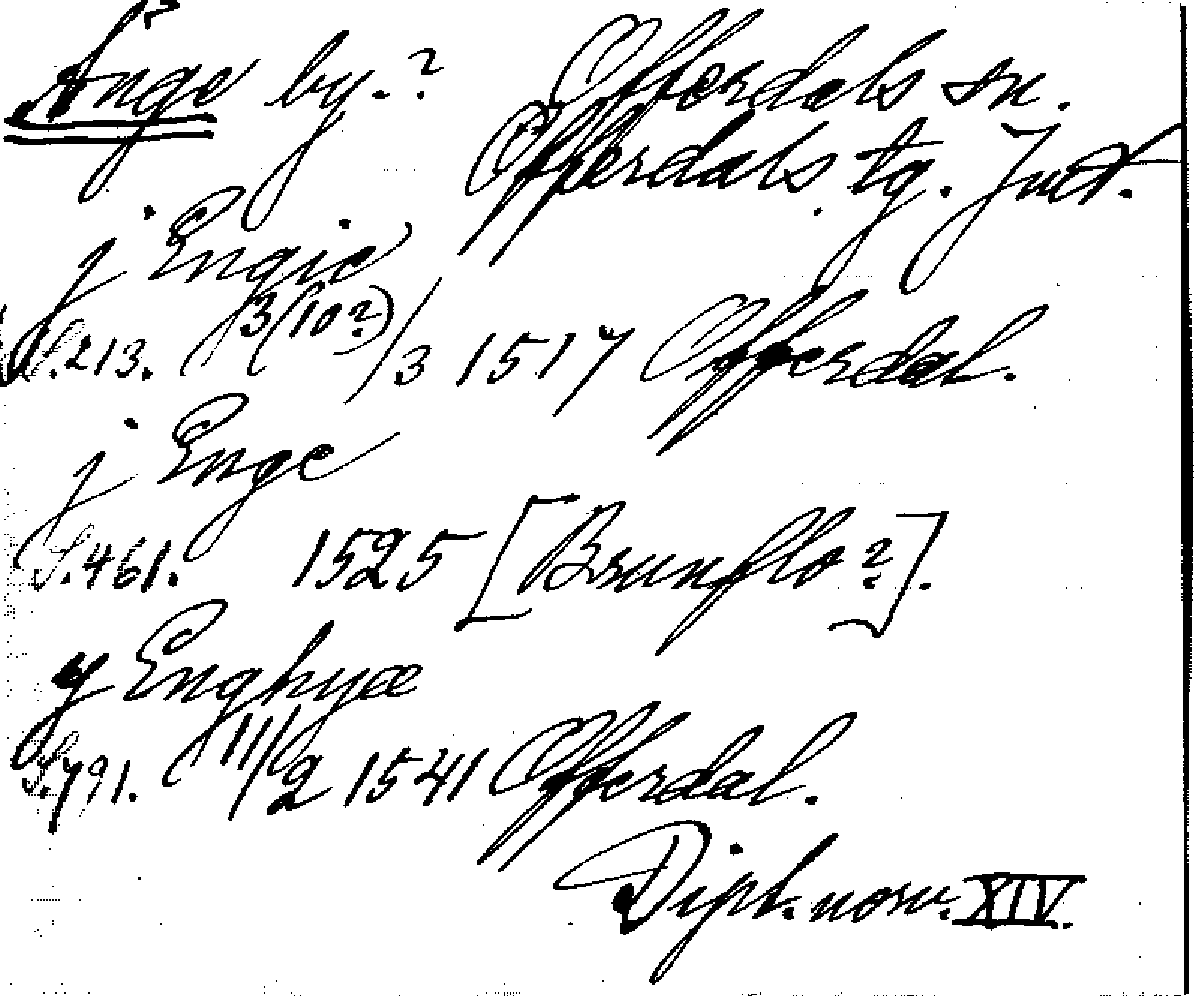 Änge by.? Offerdals sn.
Offerdals tg. Jmt.
j Engie
S.213. 3(10?)/3 1517 Offerdal.
j Enge
S.461. 1525 [Brunflo?].
y Enghyæ
S.791. 11/2 1541 Offerdal.
Dipl. norv. XIV.